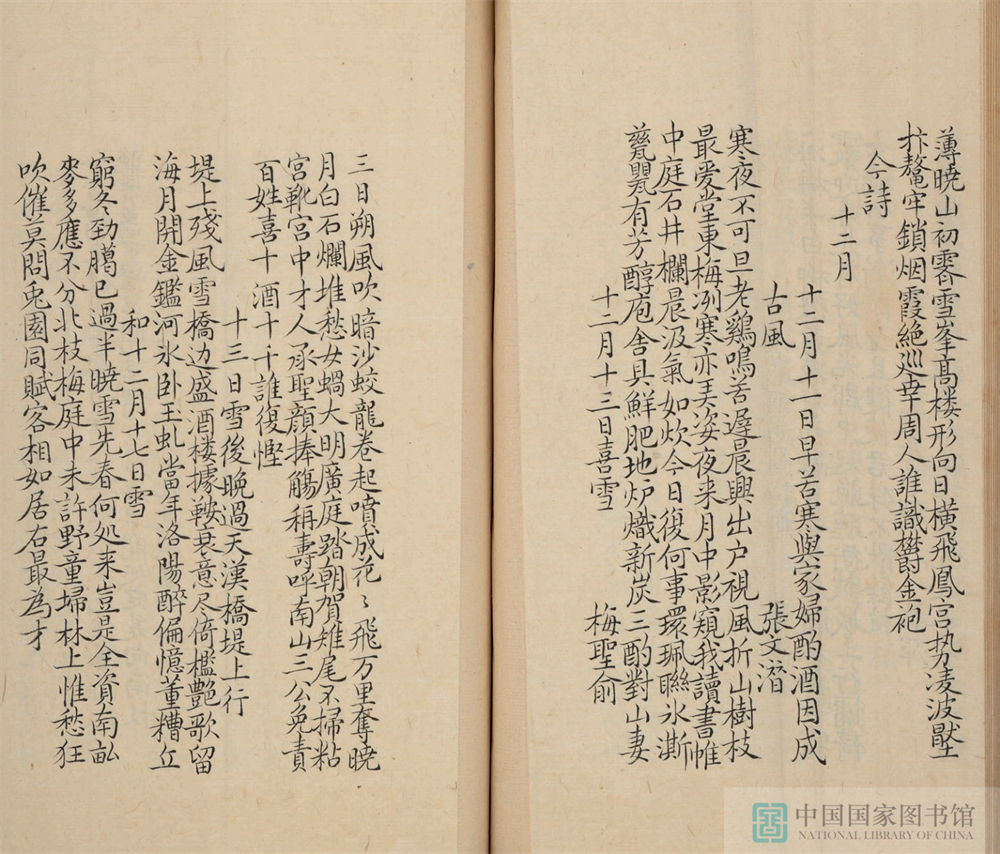 薄曉山初霽雪峯髙楼形向日横飛鳳宫势凌波壓
抃鼇牢鎖烟霞絶巡幸周人誰識欝金袍
今詩
十二月
十二月十一日早苦寒與家婦酌酒因成
古風 張文潛
寒夜不可旦老鷄鳴苦遅晨興出户視風折山樹枝
最爱堂東梅冽寒亦美姿夜来月中影窺我讀書帷
中庭石井欄晨汲氣如炊今日復何事環珮聮氷澌
甆甖有芳醇庖舎具鮮肥地炉熾新炭三酌對山妻
十二月十三日喜雪 梅聖俞
三日朔風吹暗沙蛟龍卷起噴成花〻飛万里奪曉
月白石爛堆愁女媧大明廣庭踏朝賀雉尾不掃粘
宫靴宫中才人承聖顔捧觴稱壽呼南山三公免責
百姓喜十酒十千誰復慳
十三日雪後晚過天漢橋堤上行
堤上殘風雪橋边盛酒楼據鞍衰意尽倚檻艶歌留
海月開金鑑河氷卧玉虬當年洛陽醉偏憶董糟丘
和十二月十七日雪
窮冬勁臈已過半曉雪先春何処来豈是全資南畝
麥多應不分北枝梅庭中未許野童埽林上惟愁狂
吹催莫問兎園同賦客相如居右最為才
中国国家图书馆
NATIONAL LIBRARY OF CHINA